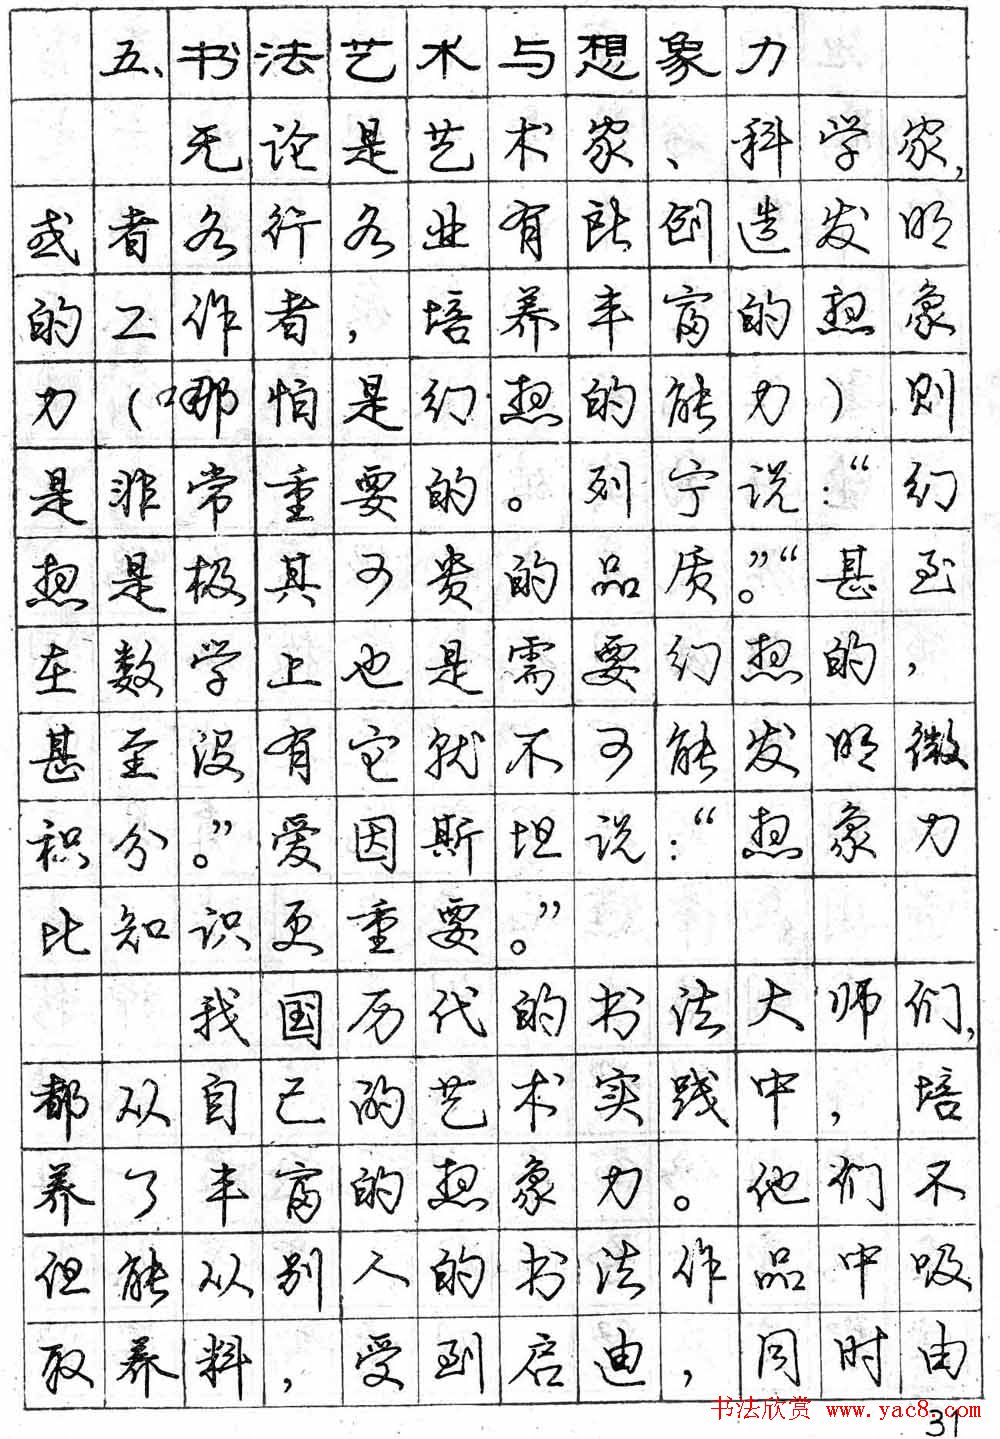 五、书法艺术与想象力
无论是艺术家、科学家,
或者各行各业有所创造发明
的工作者，培养丰富的想象
力（哪怕是幻想的能力）则
是非常重要的。列宁说：“幻
想是极其可贵的品质。”“甚至
在数学上也是需要幻想的，
甚至没有它就不可能发明微
积分。”爱因斯坦说：“想象力
比知识更重要。”
我国历代的书法大师们,
都从自己的艺术实践中，培
养了丰富的想象力。他们不
但能从别人的书法作品中吸
取养料，受到启迪，同时由
书法欣赏 www.yac8.com
31